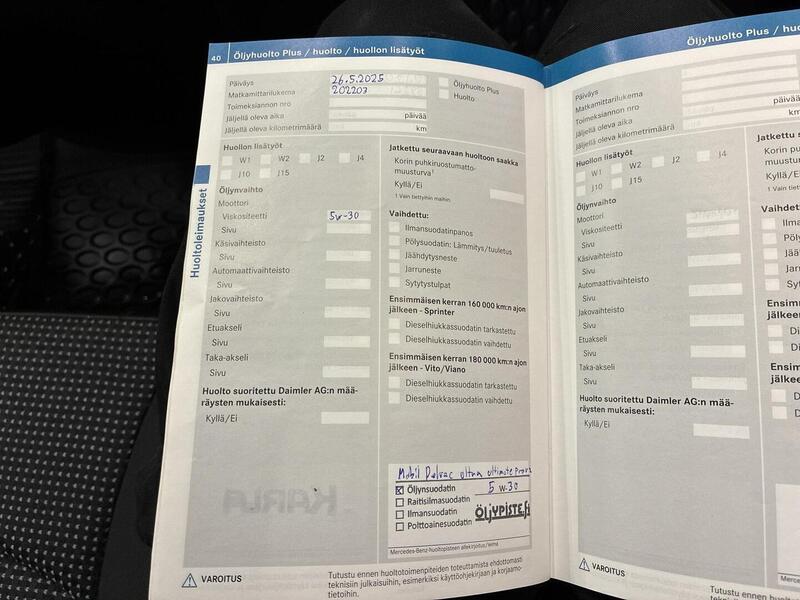 40 Öljyhuolto Plus / huolto / huollon lisätyöt
Päiväys 26.5.2025
Matkamittarilukema 202203
Toimeksiannon nro
Jäljellä oleva aika päivää
Jäljellä oleva kilometrimäärä km
Öljyhuolto Plus
Huolto
Huoltoleimaukset
Huollon lisätyöt
W1 W2 J2 J4
J10 J15
Öljynvaihto
Moottori
Viskositeetti 5w-30
Sivu
Käsivaihteisto
Sivu
Automaattivaihteisto
Sivu
Jakovaihteisto
Sivu
Etuakseli
Sivu
Taka-akseli
Sivu
Huolto suoritettu Daimler AG:n mää-
räysten mukaisesti:
Kyllä/Ei
Jatkettu seuraavaan huoltoon saakka
Korin puhkiruostumatto-
muusturva1
Kyllä/Ei
1 Vain tiettyihin maihin
Vaihdettu:
Ilmansuodatinpanos
Pölysuodatin: Lämmitys/tuuletus
Jäähdytysneste
Jarruneste
Sytytystulpat
Ensimmäisen kerran 160 000 km:n ajon
jälkeen - Sprinter
Dieselhiukkassuodatin tarkastettu
Dieselhiukkassuodatin vaihdettu
Ensimmäisen kerran 180 000 km:n ajon
jälkeen - Vito/Viano
Dieselhiukkassuodatin tarkastettu
Dieselhiukkassuodatin vaihdettu
Mobil Delvac ultra ultimate
Öljynsuodatin 5w-30
Raitisilmasuodatin
Ilmansuodatin
Polttoainesuodatin
ÖLJYPISTE.fi
Mercedes-Benz-huoltopisteen allekirjoitus/leima
VAROITUS
Tutustu ennen huoltotoimenpiteiden toteuttamista ehdottomasti
teknisiin julkaisuihin, esimerkiksi käyttöohjekirjaan ja korjaamo-
tietoihin.
Öljyhuolto Plus / huo
Päiväys
Matkamittarilukema
Toimeksiannon nro
Jäljellä oleva aika päivää
Jäljellä oleva kilometrimäärä km
Huollon lisätyöt
W1 W2 J2 J4
J10 J15
Öljynvaihto
Moottori
Viskositeetti
Sivu
Käsivaihteisto
Sivu
Automaattivaihteisto
Sivu
Jakovaihteisto
Sivu
Etuakseli
Sivu
Taka-akseli
Sivu
Huolto suoritettu Daimler AG:n mää-
räysten mukaisesti:
Kyllä/Ei
Jatkettu s
Korin puh
muusturva
Kyllä/Ei
1 Vain tietty
Vaihdett
Ilma
Pöly
Jää
Jarr
Syt
Ensimm
jälkeen
Di
Di
Ensim
jälkee
D
D
Merce
VAROITUS
Tutustu ennen huol
teknisiin julkaisuihi
tietoihin.